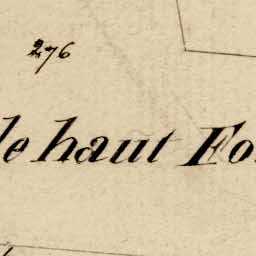 276
le haut Fo